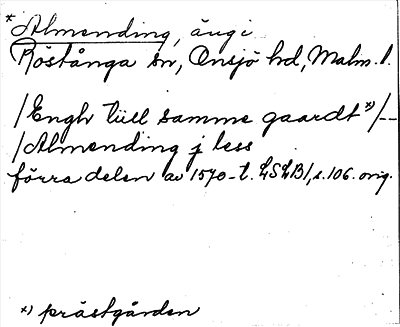 * Almending, äng i
Röstånga sn, Onsjö hd, Malm. l.
/Engh tiill samme gaardt *)/--
/Almending j less
förra delen av 1570-t. LSLB1, s. 106. orig.
*) prästgården